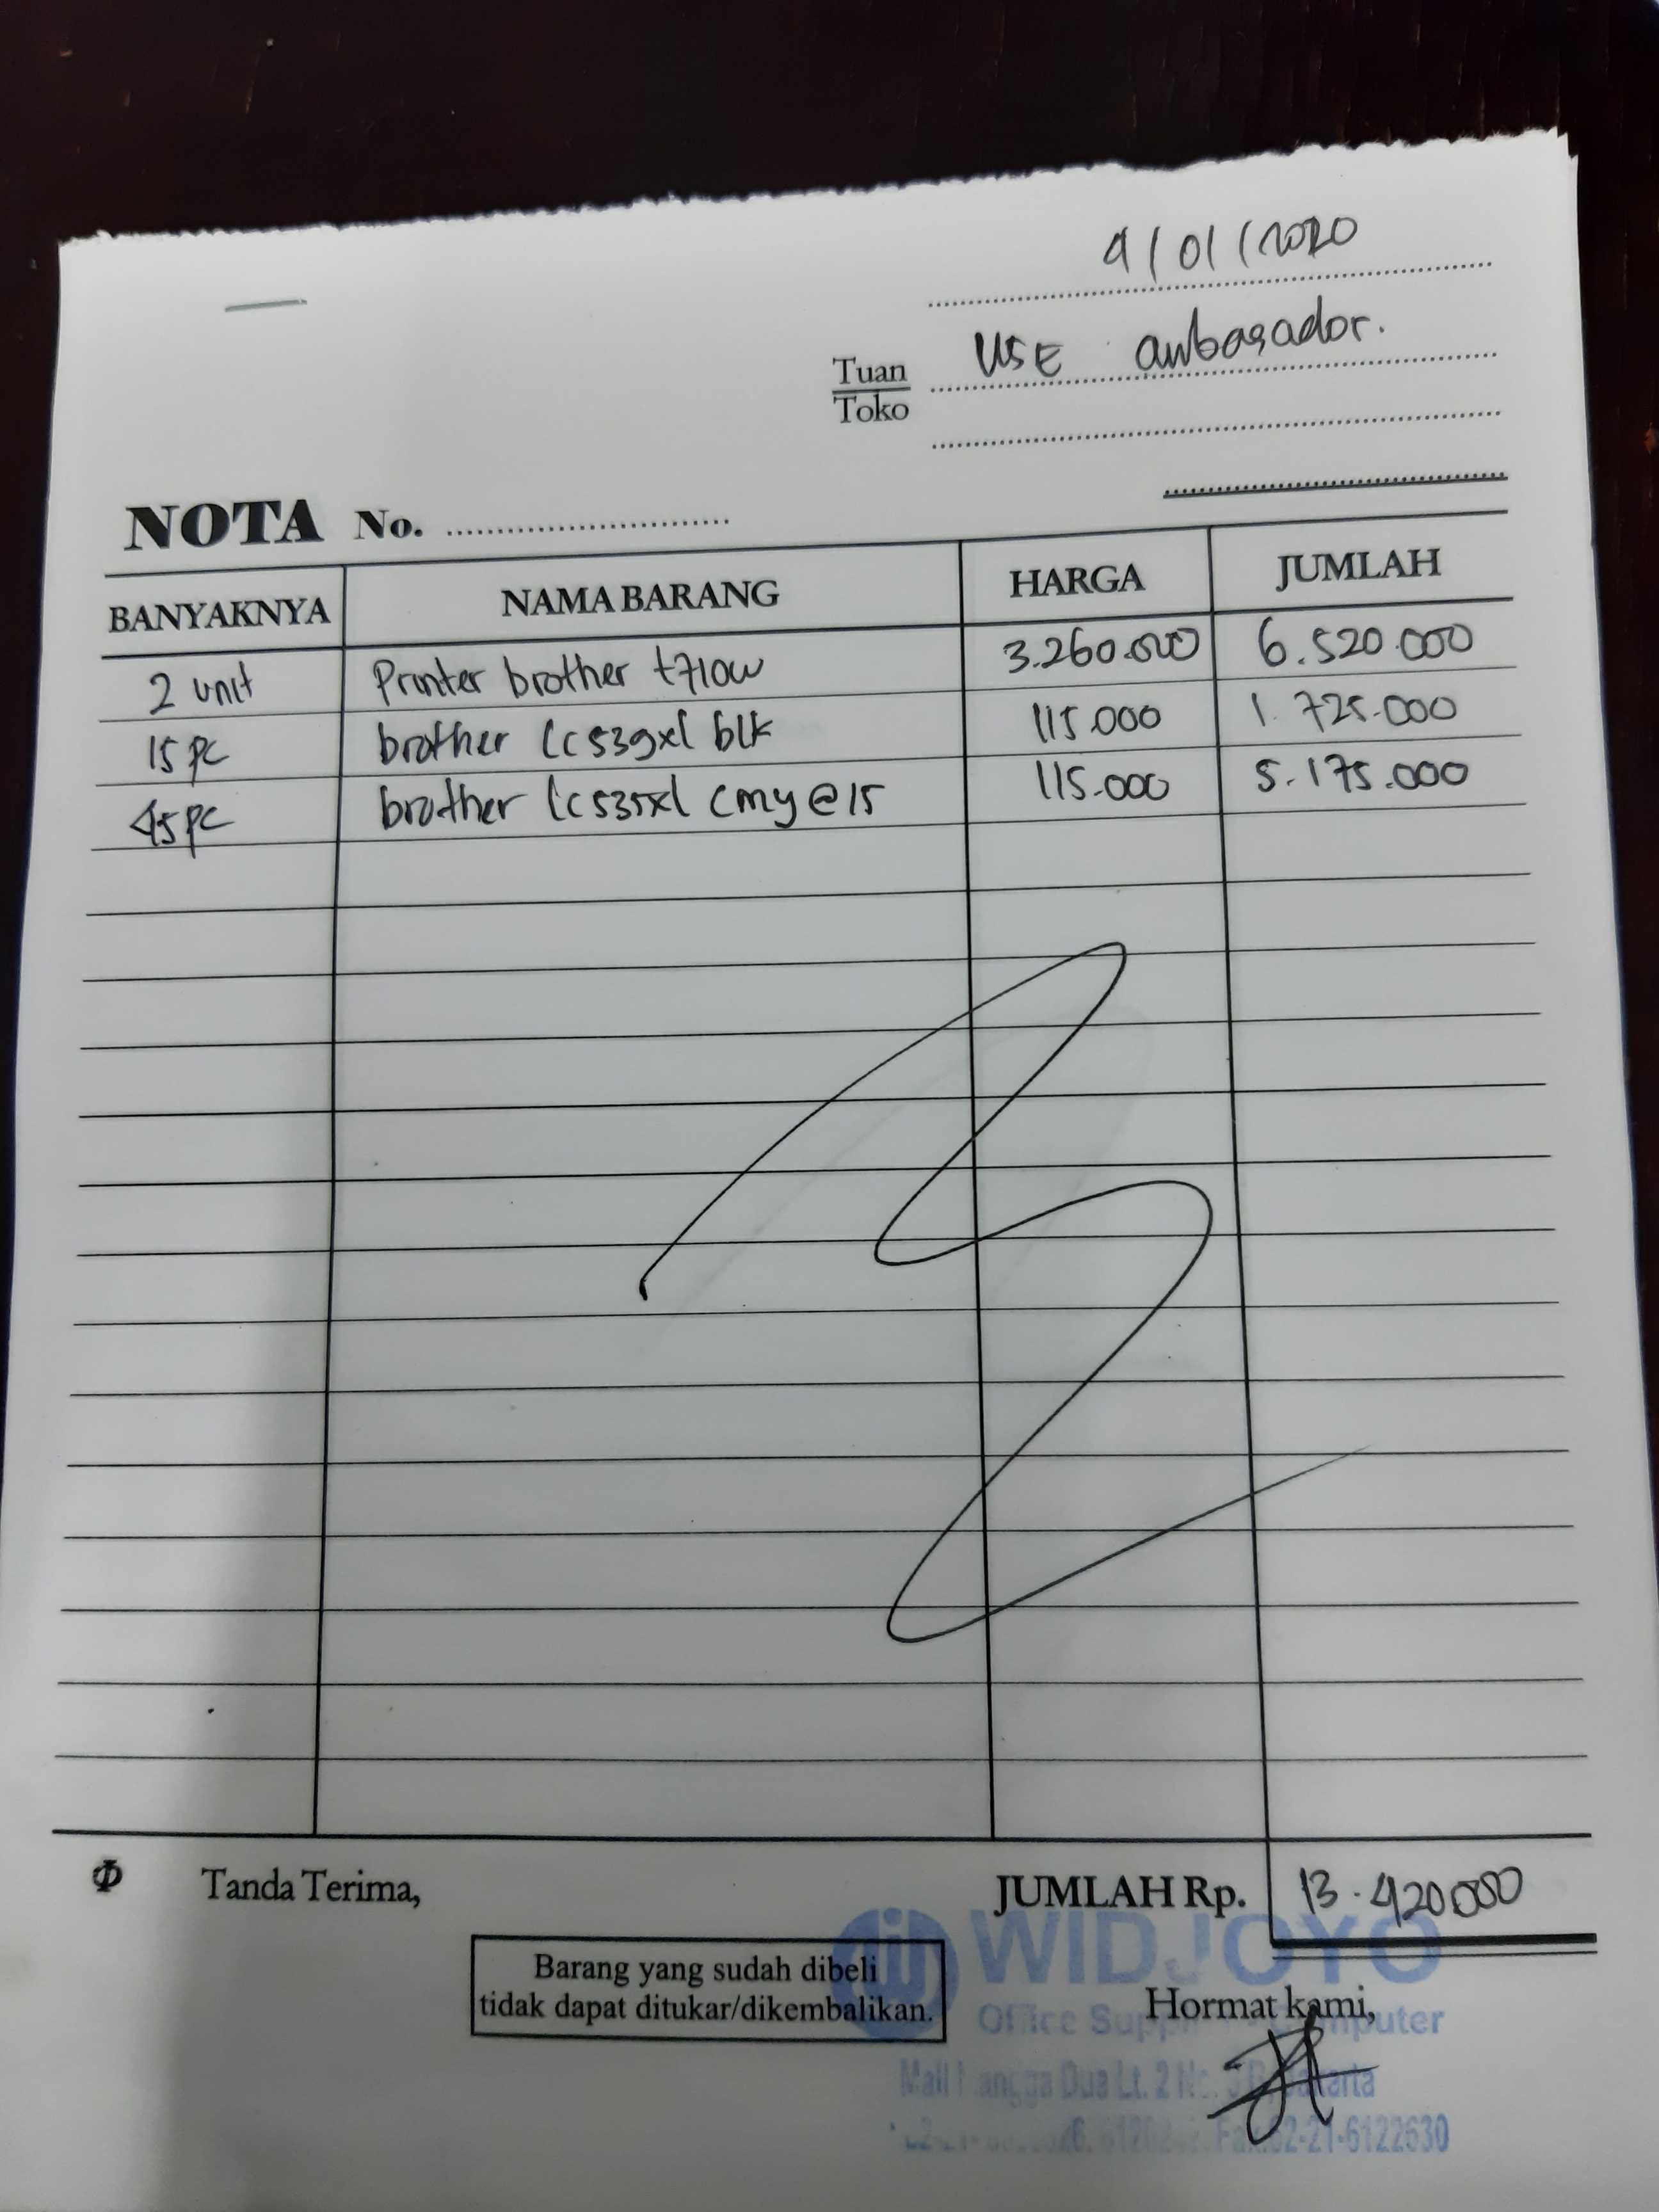 9/01/2020
Tuan
Toko
USE ambasador.
NOTA No.
BANYAKNYA NAMA BARANG HARGA JUMLAH
2 unit Printer brother t710w 3.260.000 6.520.000
15 pc brother lc539xl blk 115.000 1.725.000
45 pc brother lc535xl cmy @15 115.000 5.175.000
Tanda Terima, JUMLAH Rp. 13.420.000
WIDJOYO
Barang yang sudah dibeli
tidak dapat ditukar/dikembalikan.
Hormat kami,
Office Computer
Mall Mangga Dua Lt. 2 Jakarta
Fax:62-21-6122630